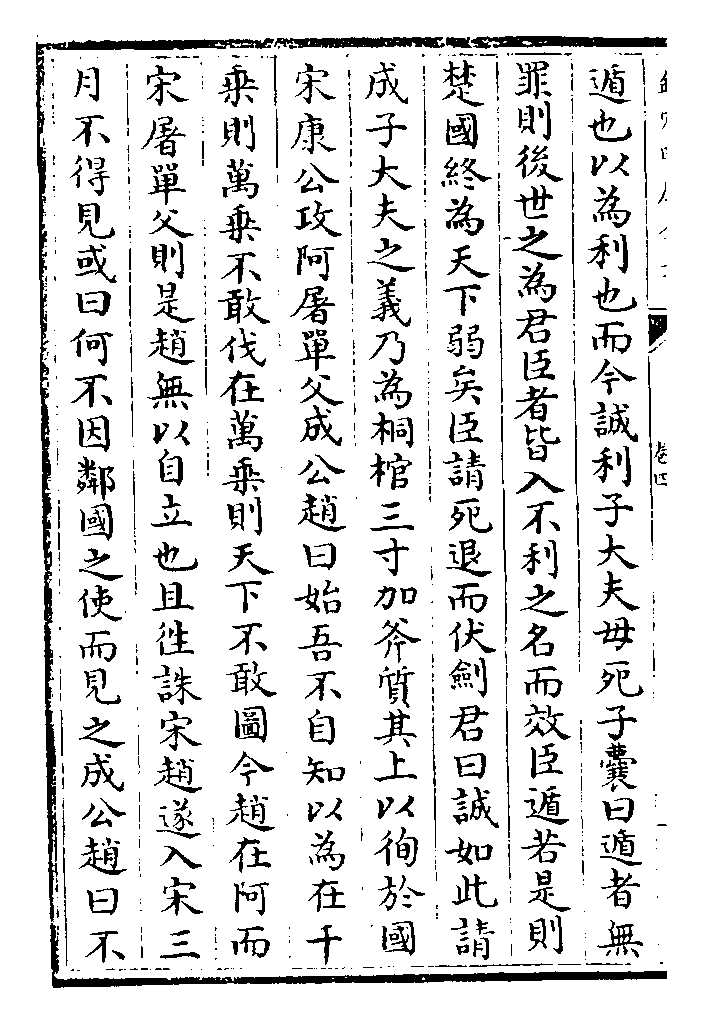 遁也以為利也而今誠利子大夫毋死子囊曰遁者無
罪則後世之為君臣者皆入不利之名而效臣遁若是則
楚國終為天下弱矣臣請死退而伏劍君曰誠如此請
成子大夫之義乃為桐棺三寸加斧質其上以徇於國
宋康公攻阿屠單父成公趙曰始吾不自知以為在千
乘則萬乘不敢伐在萬乘則天下不敢圖今趙在阿而
宋屠單父則是趙無以自立也且徃誅宋趙遂入宋三
月不得見或曰何不因鄰國之使而見之成公趙曰不
卷四